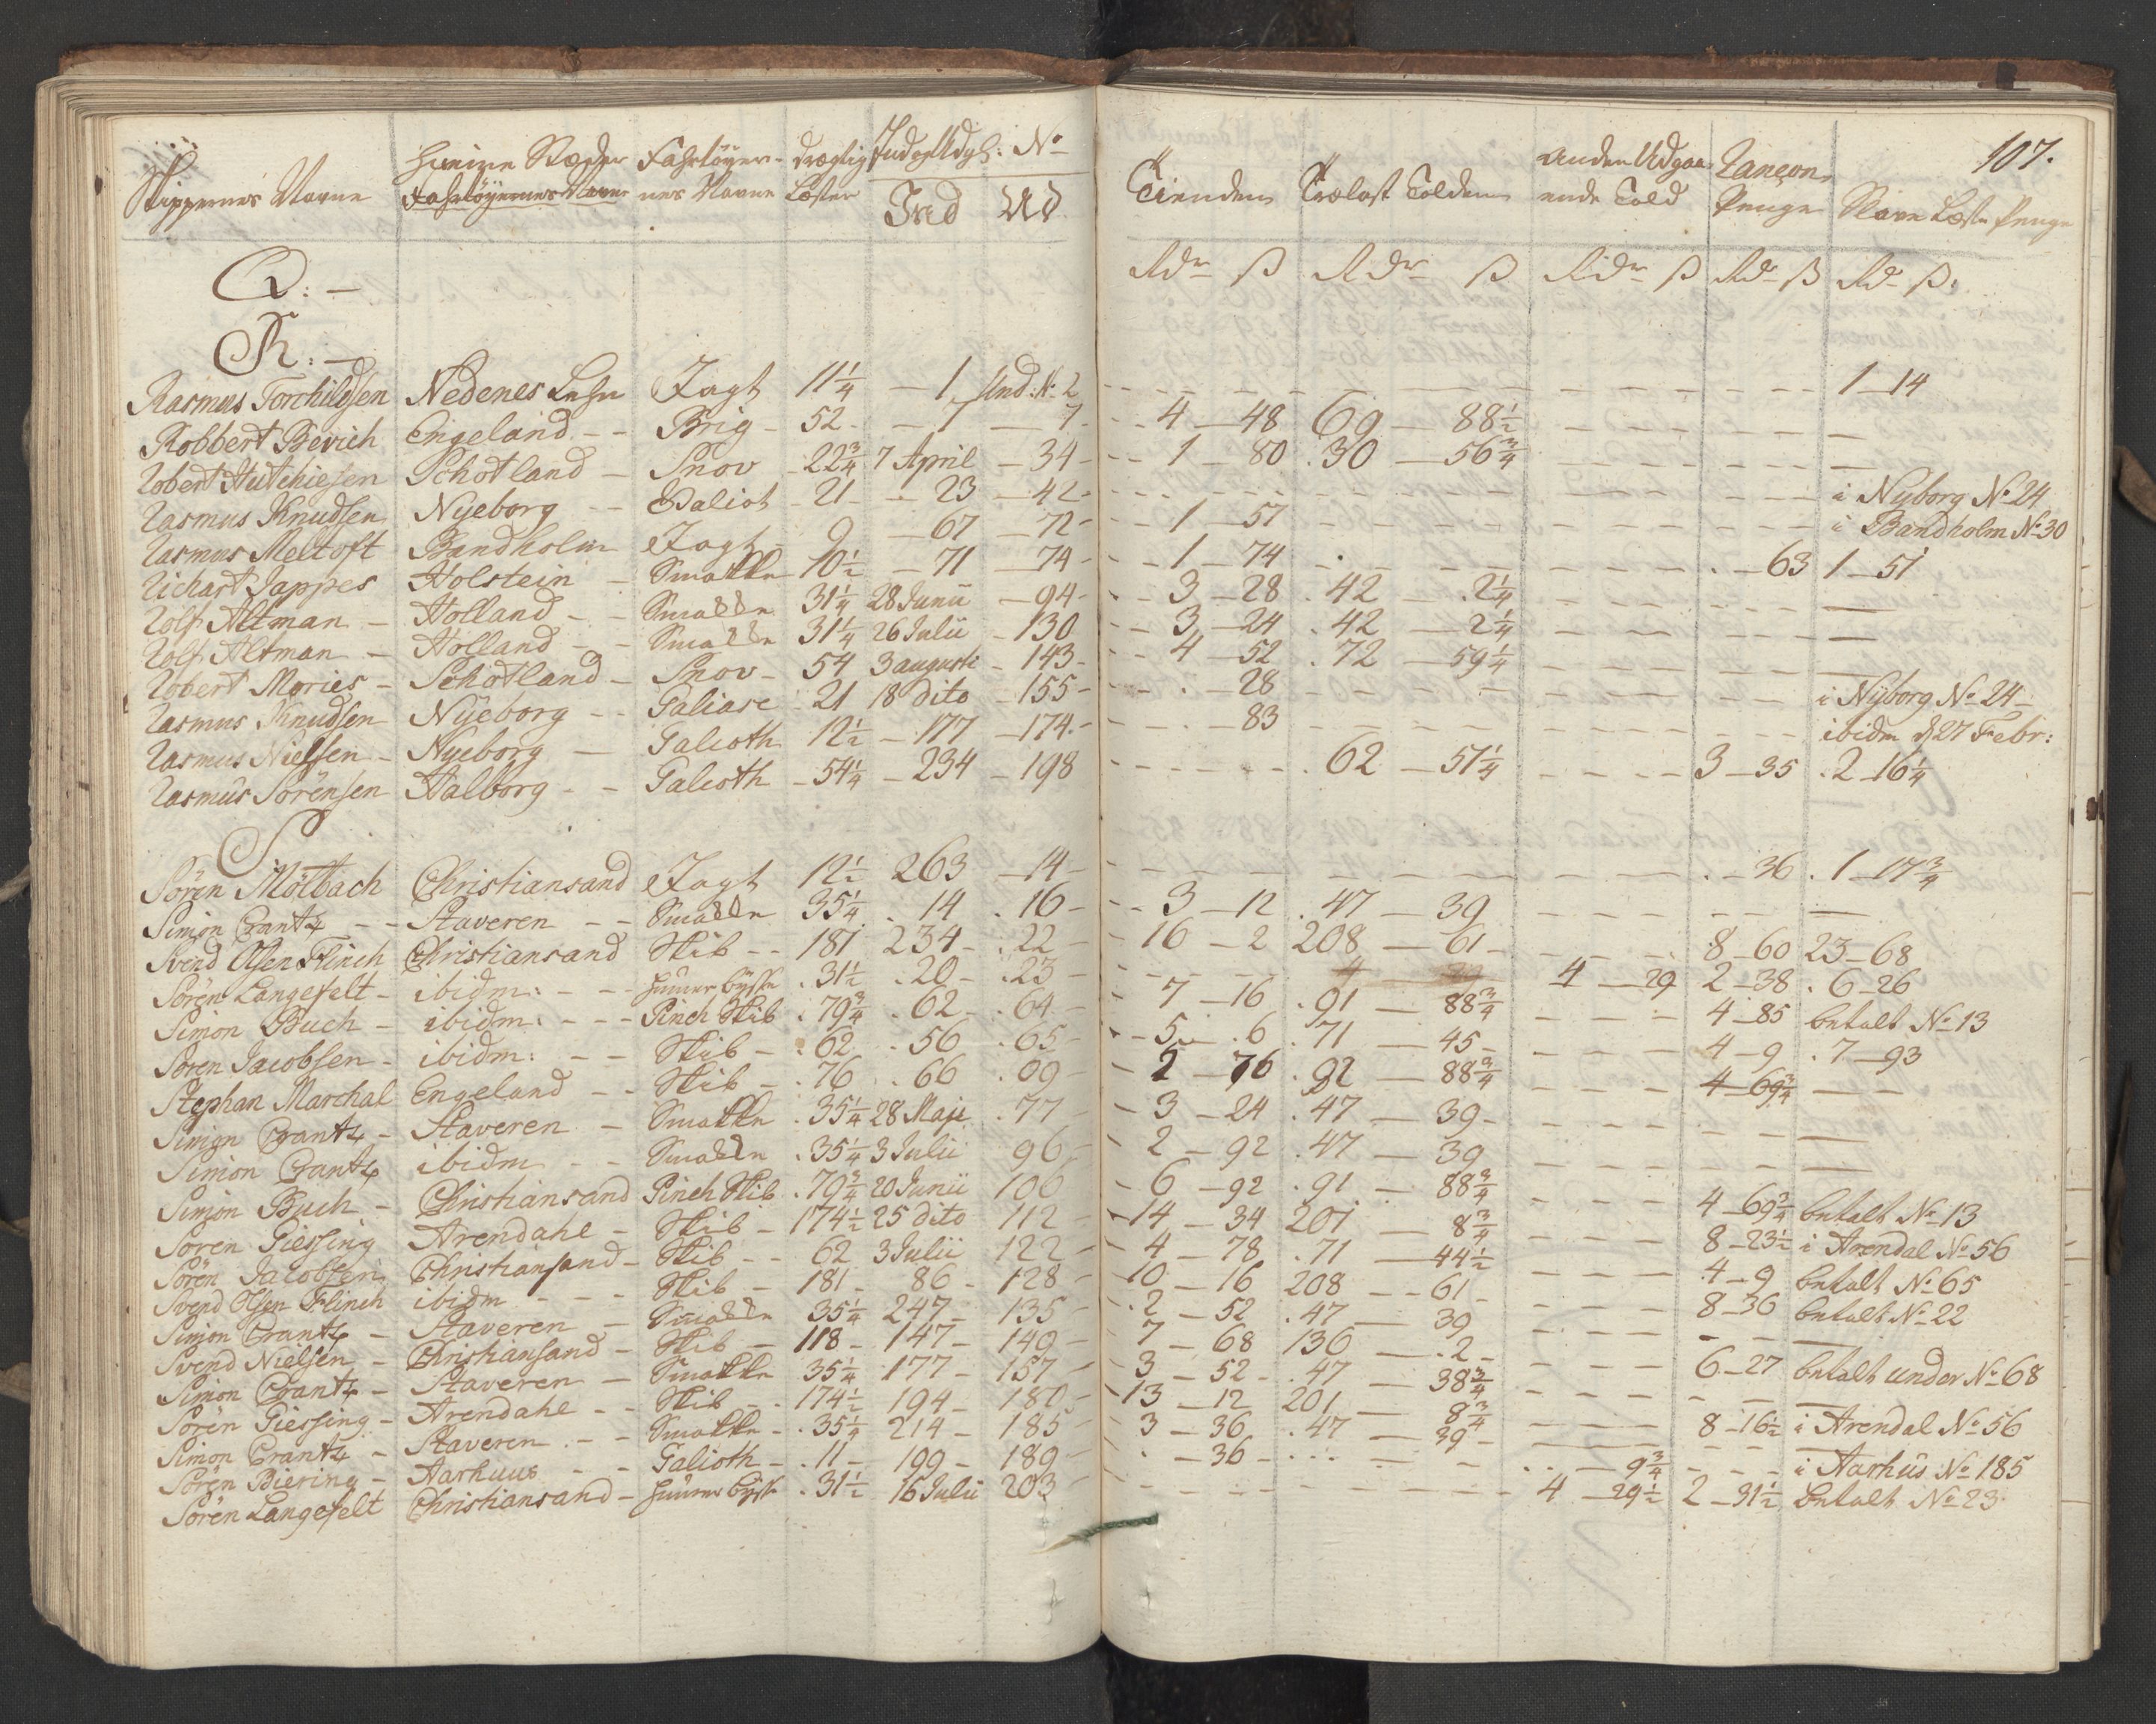 107.
Skippernes Navne | Hiemme Stæder | Fahrtöyernes Navne | Drægtig Læster | Ind og Udg: No Ind Ud | Tienden | Trælast Tolden | Anden Udgaaende Told | Rançons Penge | Slave Læste Penge
Rdr ß | Rdr ß | Rdr ß | Rd ß | Rd ß:
Q: —
R: —
Rasmus Torchildsen Nedenes Lehn Jagt 11 1/4 — 1 Und: No 2 — 1 — 14
Robbert Bevich Engeland — Brig — 52 — 7 — 7 — 4 — 48 69 — 88 1/2 —
Robert Hutchiesen Schotland — Snov — 22 3/4 7 April — 34 — 1 — 80 30 — 56 3/4 —
Rasmus Knudsen Nyeborg — Galiot — 21 — 23 — 42 — i Nyborg No 24
Rasmus Meltoft Bandholm Jagt — 9 — 67 — 72 — 1 — 57 — i Bandholm No 30
Richart Jappes Holstein — Smakke 10 1/2 — 71 — 74 — 1 — 74 — 63 1 — 51
Rolf Altman — Holland — Smakke 31 1/4 28 Junii — 94 — 3 — 28 42 — 2 1/4 —
Rolf Altman — Holland — Smakke 31 1/4 26 Julii — 130 — 3 — 24 42 — 2 1/4 —
Robert Mories — Schotland — Snov — 54 3 augusti — 143 — 4 — 52 72 — 59 1/4 —
Rasmus Knudsen Nyeborg — Galiase 21 18 dito — 155 — 28 — i Nyborg No 24 —
Rasmus Nielsen — Nyeborg — Galioth 12 1/2 — 177 — 174 — 83 — ibidm d 27 Febr:
Rasmus Sörensen Aalborg — Galioth — 54 1/4 — 234 — 198 — 62 — 51 1/4 — 3 — 35 2 — 16 1/4
S
Sören Möltbach Christiansand Jagt 12 1/2 263 — 14 — 36 1 — 17 3/4
Simon Crantz — Staveren — Smakke 35 1/4 14 16 — 3 — 12 47 — 39 —
Svend Olsen Flinch Christiansand Skib — 181 234 — 22 — 16 — 2 208 — 61 — 8 — 60 23 — 68
Sören Langefelt — ibidm: — 31 1/2 20 — 23 — 4 — 29 2 — 38 6 — 26
Simon Buch — ibidm: — Pinch Skib 79 3/4 62 — 64 — 7 — 16 91 — 88 3/4 — 4 — 85 betalt No 13
Sören Jacobsen — ibidm: — Skib — 62 56 65 — 5 — 6 71 — 45 — 4 — 9 7 — 93
Stephan Marchal Engeland — Skib — 76 66 69 — 2 — 76 92 — 88 3/4 — 4 — 69 3/4 —
Simon Crantz — Staveren — Smakke 35 1/4 28 Maji 77 — 3 — 24 47 — 39 —
Simon Crantz ibidm — Smakke 35 1/4 3 Julii 96 — 2 — 92 47 — 39 —
Simon Buch — Christiansand Pinch Skib 79 3/4 20 Junii 106 — 6 — 92 91 — 88 3/4 — 4 — 69 3/4 betalt No 13
Sören Giessing Arendahl — Skib — 174 1/2 25 dito 112 — 14 — 34 201 — 8 3/4 — 8 — 23 1/2 i Arendal No 56
Sören Jacobsen Christiansand — Skib — 62 3 Julii 122 — 4 — 78 71 — 44 1/2 — 4 — 9 betalt No 65
Svend Olsen Flinch ibidm — Skib — 181 — 86 — 128 — 10 — 16 208 — 61 — 8 — 36 betalt No 22
Simon Crantz — Staveren — Smakke 35 1/4 247 — 135 — 2 — 52 47 — 39 —
Svend Nielsen — Christiansand — Skib — 118 — 147 — 149 — 7 — 68 136 — 2 — 6 — 27 betalt under No 68
Simon Crantz — Staveren — Smakke 35 1/4 177 — 157 — 3 — 52 — 47 — 38 3/4 —
Sören Giessing — Arendahl — Skib — 174 1/2 194 — 180 — 13 — 12 201 — 8 3/4 — 8 — 16 1/2 i Arendal No 56
Simon Crantz — Staveren — Smakke — 35 1/4 214 — 185 — 3 — 36 47 — 39 —
Sören Biering — Aarhuus — Galioth — 11 — 199 — 189 — 36 — 9 3/4 — i Aarhüs No 185
Sören Langefelt Christiansand — 31 1/2 16 Julii 203 — 4 — 29 1/2 2 — 31 1/2 betalt No 23